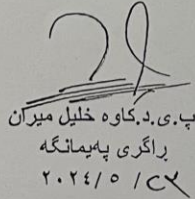 پ.ی.د.کاوە خلیل میران
ڕاگری پەیمانگە
٢٠٢٤/٥ /٢٧